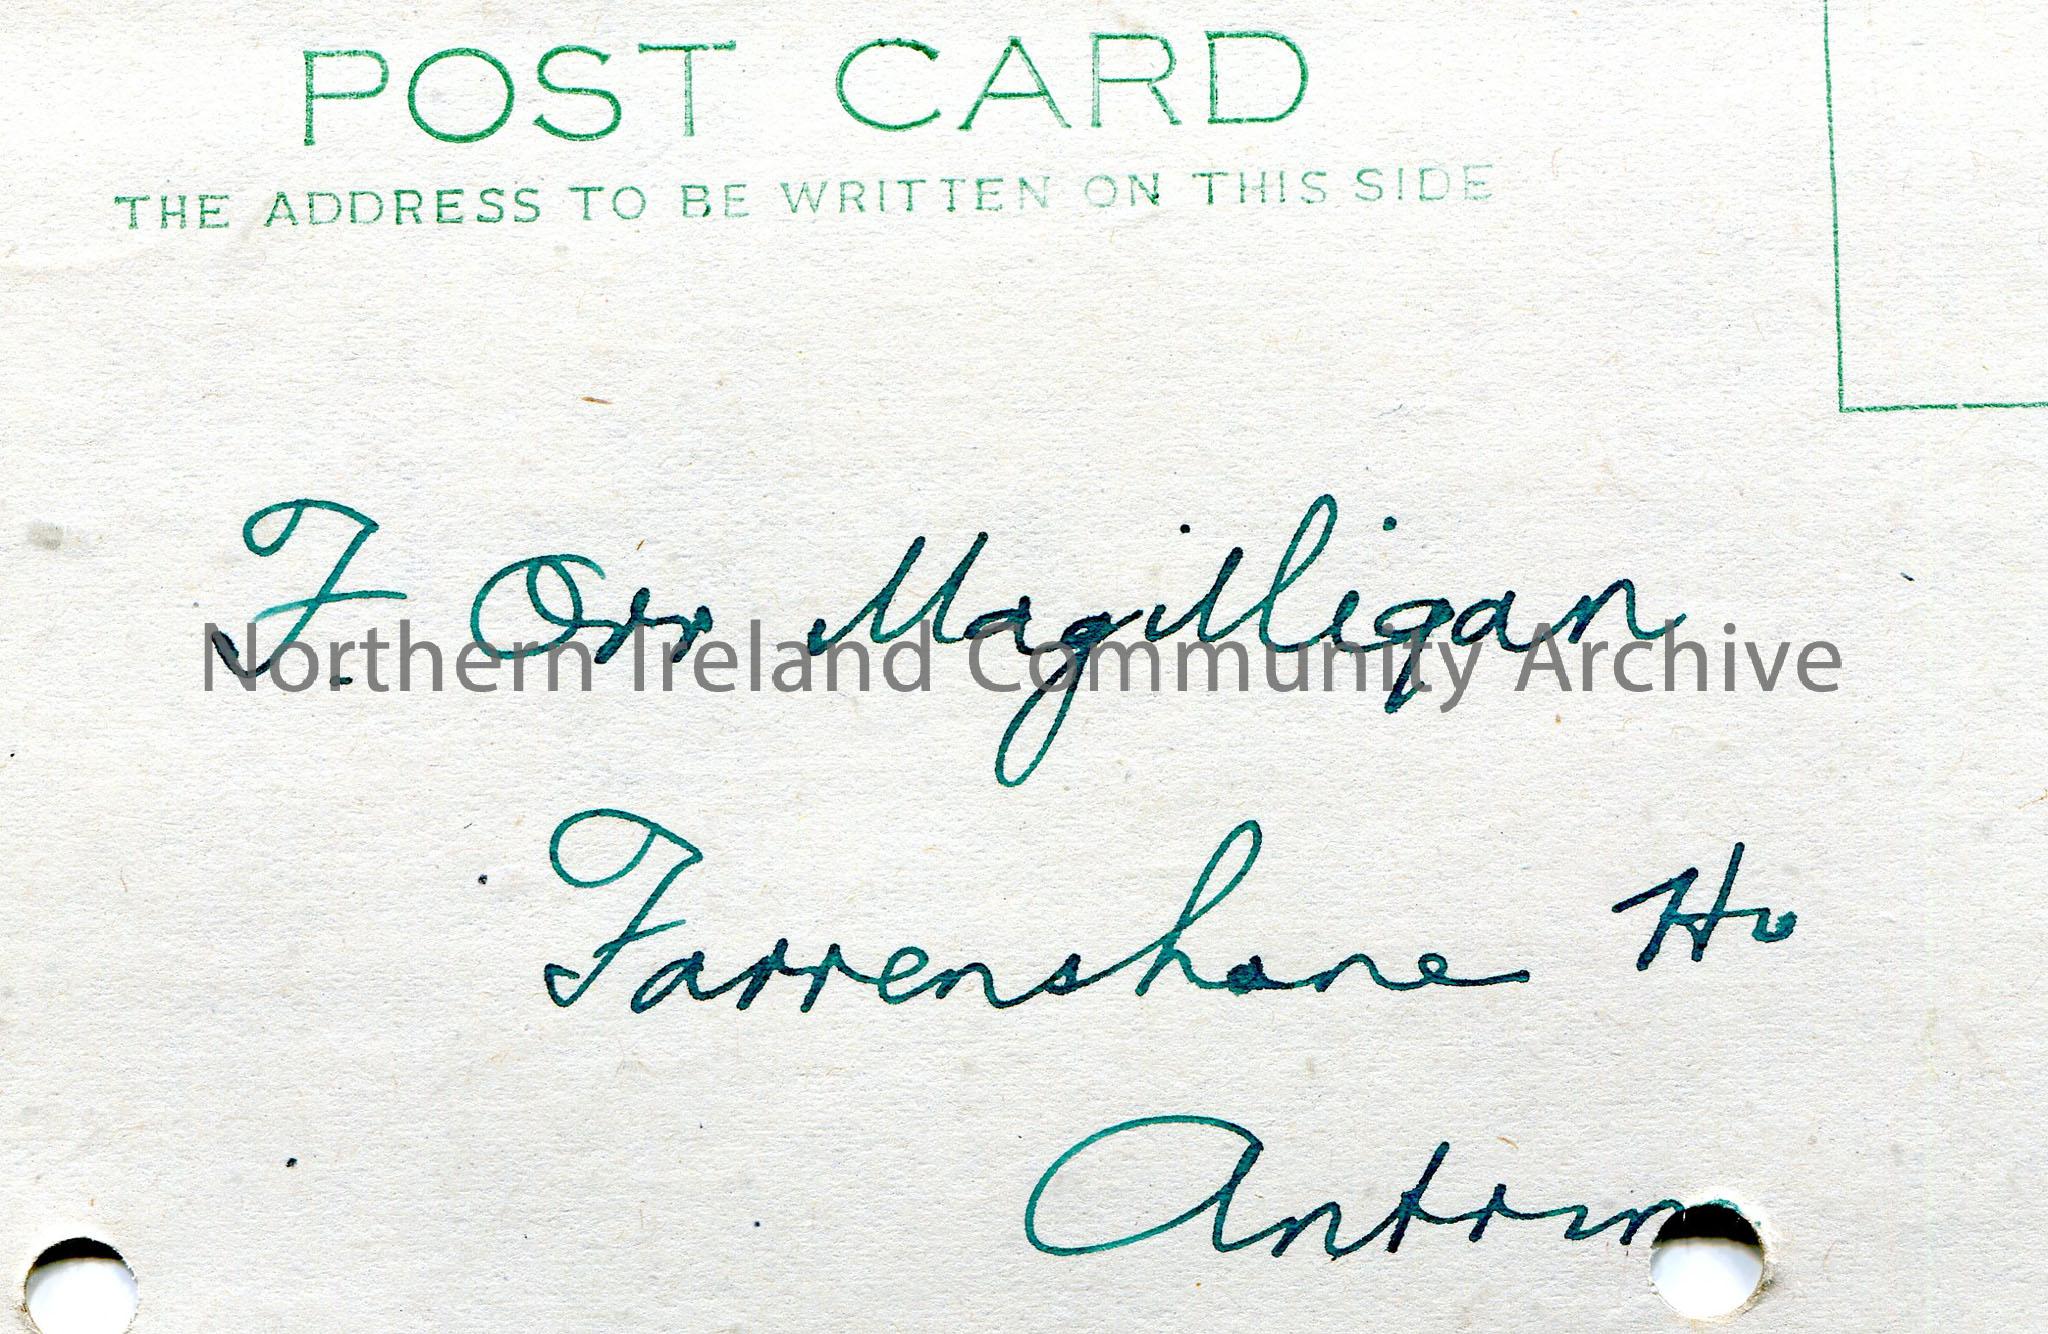 POST CARD
THE ADDRESS TO BE WRITTEN ON THIS SIDE
F. Orr Magilligan
Northern Ireland Community Archive
Farrenshane Ho
Antrim